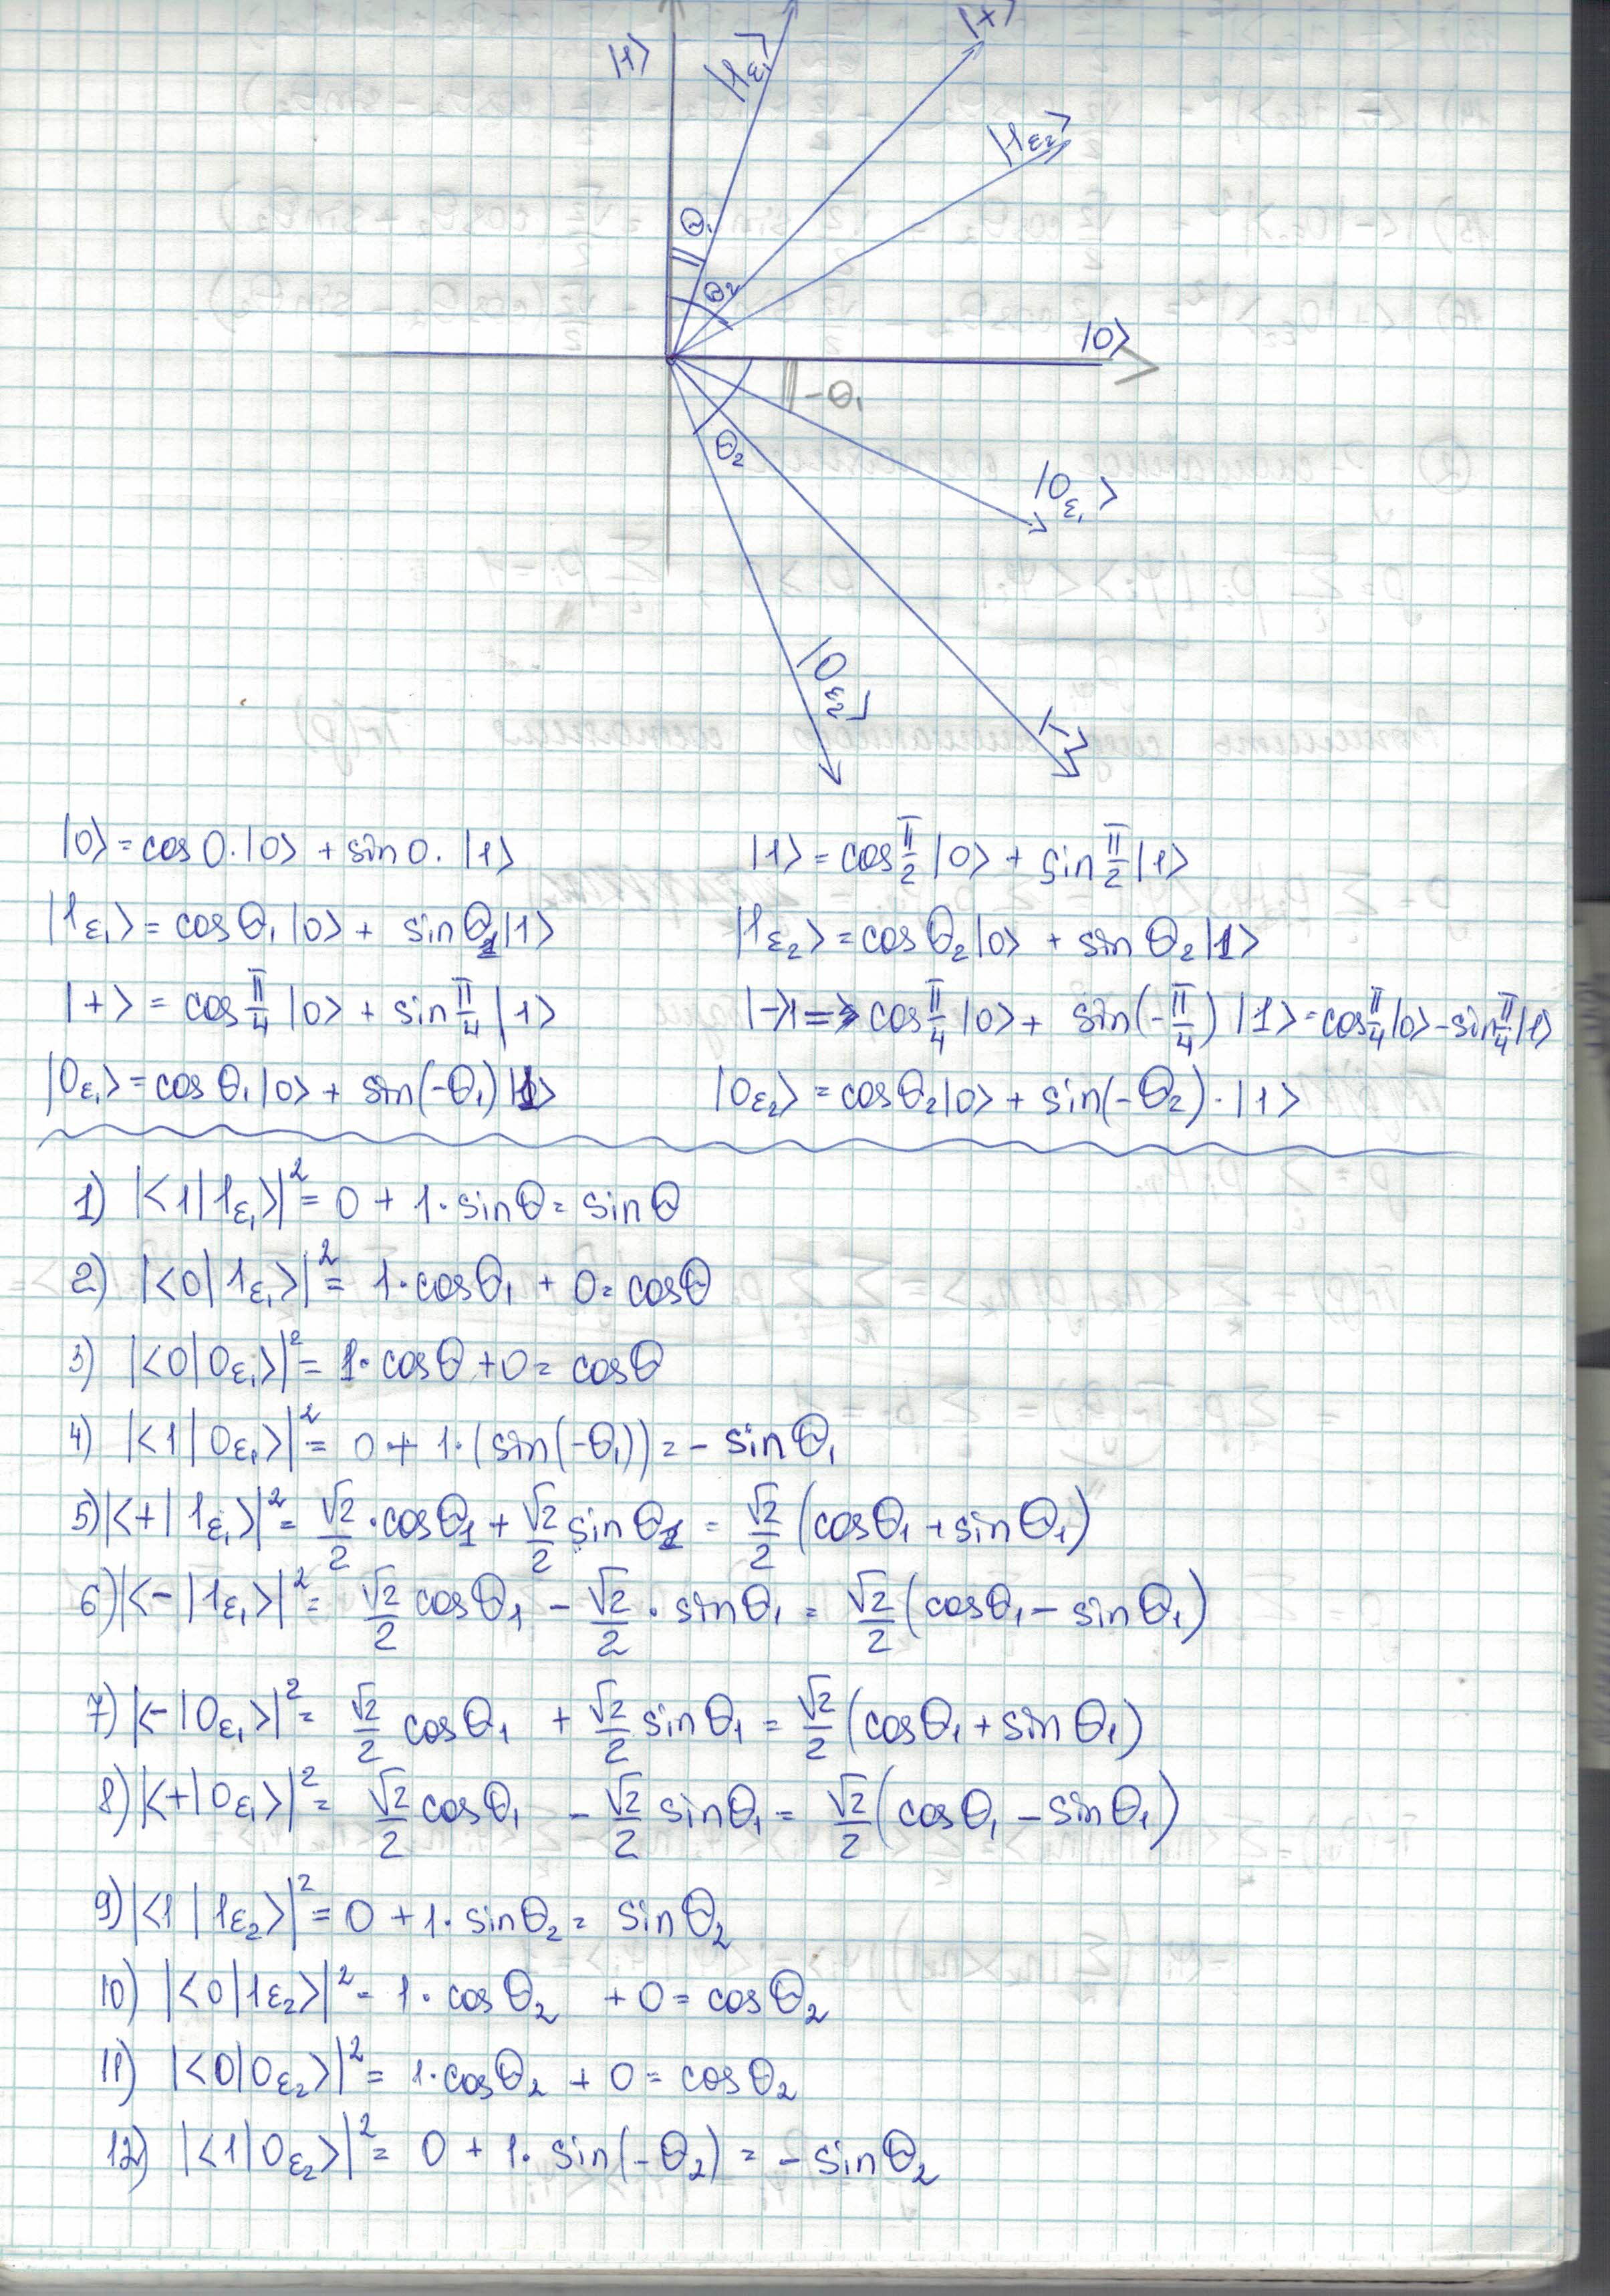 |1⟩ |1ε₁⟩ |+⟩
|1ε₂⟩
θ₁
θ₂
|0⟩
-θ₁
θ₂
|0ε₁⟩
|0ε₂⟩
|-⟩
|0⟩ = cos 0·|0⟩ + sin 0·|1⟩ |1⟩ = cos π/2 |0⟩ + sin π/2 |1⟩
|1ε₁⟩ = cos θ₁|0⟩ + sin θ₁|1⟩ |1ε₂⟩ = cos θ₂|0⟩ + sin θ₂|1⟩
|+⟩ = cos π/4 |0⟩ + sin π/4 |1⟩ |-⟩ = cos π/4 |0⟩ + sin(-π/4) |1⟩ = cos π/4 |0⟩ - sin π/4 |1⟩
|0ε₁⟩ = cos θ₁|0⟩ + sin(-θ₁)|1⟩ |0ε₂⟩ = cos θ₂|0⟩ + sin(-θ₂)·|1⟩
1) |<1|1ε₁>|² = 0 + 1·sin θ = sin θ
2) |<0|1ε₁>|² = 1·cos θ₁ + 0 = cos θ
3) |<0|0ε₁>|² = 1·cos θ + 0 = cos θ
4) |<1|0ε₁>|² = 0 + 1·(sin(-θ₁)) = - sin θ₁
5) |<+|1ε₁>|² = √2/2 · cos θ₁ + √2/2 sin θ₁ = √2/2 (cos θ₁ + sin θ₁)
6) |<-|1ε₁>|² = √2/2 cos θ₁ - √2/2 · sin θ₁ = √2/2 (cos θ₁ - sin θ₁)
7) |<-|0ε₁>|² = √2/2 cos θ₁ + √2/2 sin θ₁ = √2/2 (cos θ₁ + sin θ₁)
8) |<+|0ε₁>|² = √2/2 cos θ₁ - √2/2 sin θ₁ = √2/2 (cos θ₁ - sin θ₁)
9) |<1|1ε₂>|² = 0 + 1·sin θ₂ = sin θ₂
10) |<0|1ε₂>|² = 1·cos θ₂ + 0 = cos θ₂
11) |<0|0ε₂>|² = 1·cos θ₂ + 0 = cos θ₂
12) |<1|0ε₂>|² = 0 + 1·sin(-θ₂) = - sin θ₂